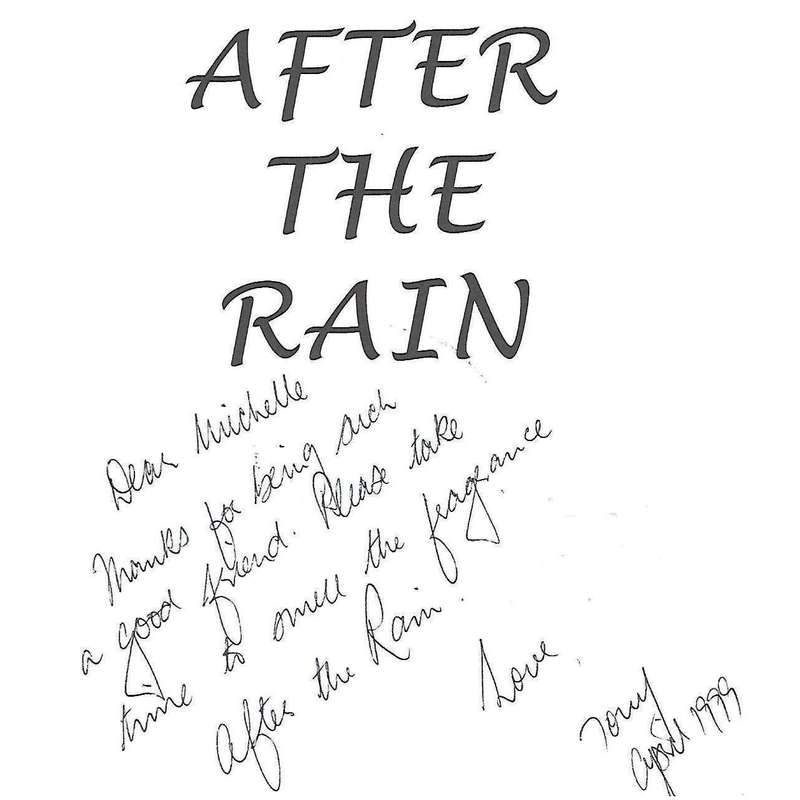 AFTER
THE
RAIN
Dear Michelle
Thanks for being such
a good friend. Please take
time to smell the fragrance
After the Rain.
Love
Tony
April 1999